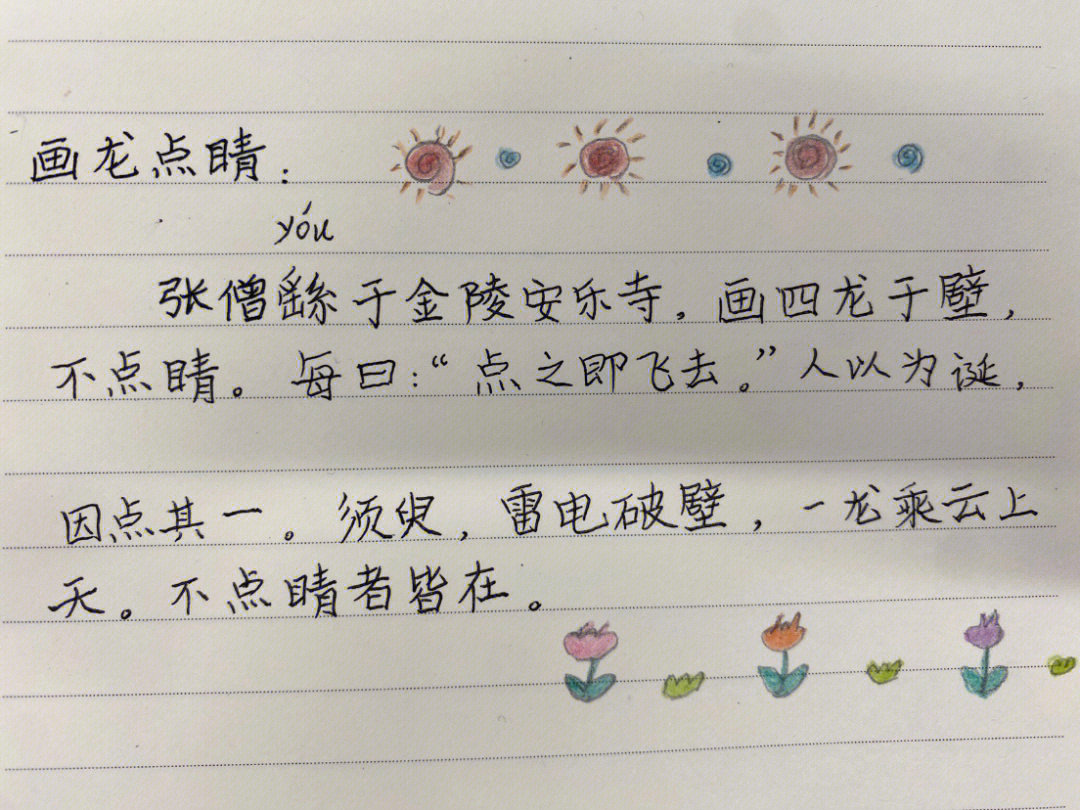 画龙点睛：
yóu
张僧繇于金陵安乐寺，画四龙于壁，
不点睛。每曰：“点之即飞去。”人以为诞，
因点其一。须臾，雷电破壁，一龙乘云上
天。不点睛者皆在。